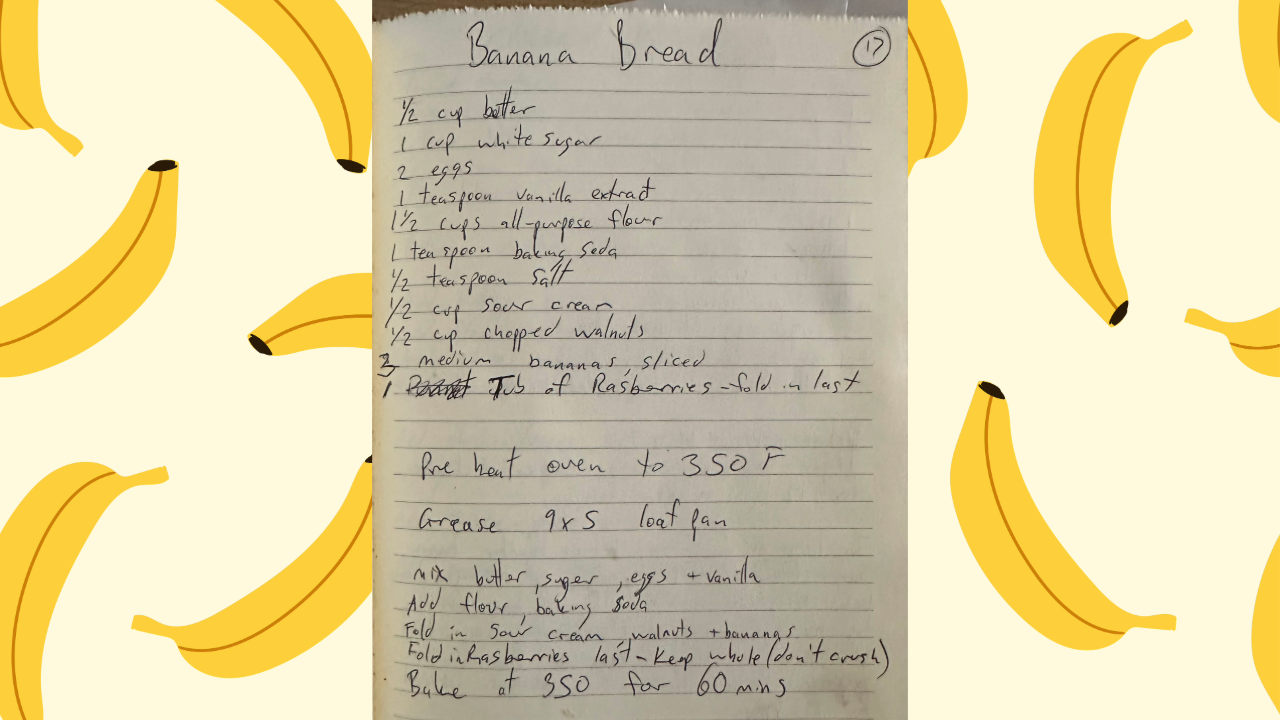 Banana Bread 17
1/2 cup butter
1 cup white sugar
2 eggs
1 teaspoon vanilla extract
1 1/2 cups all-purpose flour
1 teaspoon baking soda
1/2 teaspoon salt
1/2 cup sour cream
1/2 cup chopped walnuts
3 medium bananas, sliced
1 Tub of Rasberries - fold in last
Pre heat oven to 350 F
Grease 9x5 loaf pan
Mix butter, suger, eggs + vanilla
Add flour, baking soda
Fold in sour cream, walnuts + bananas
Fold in Rasberries last - Keep whole (don't crush)
Bake at 350 for 60 mins